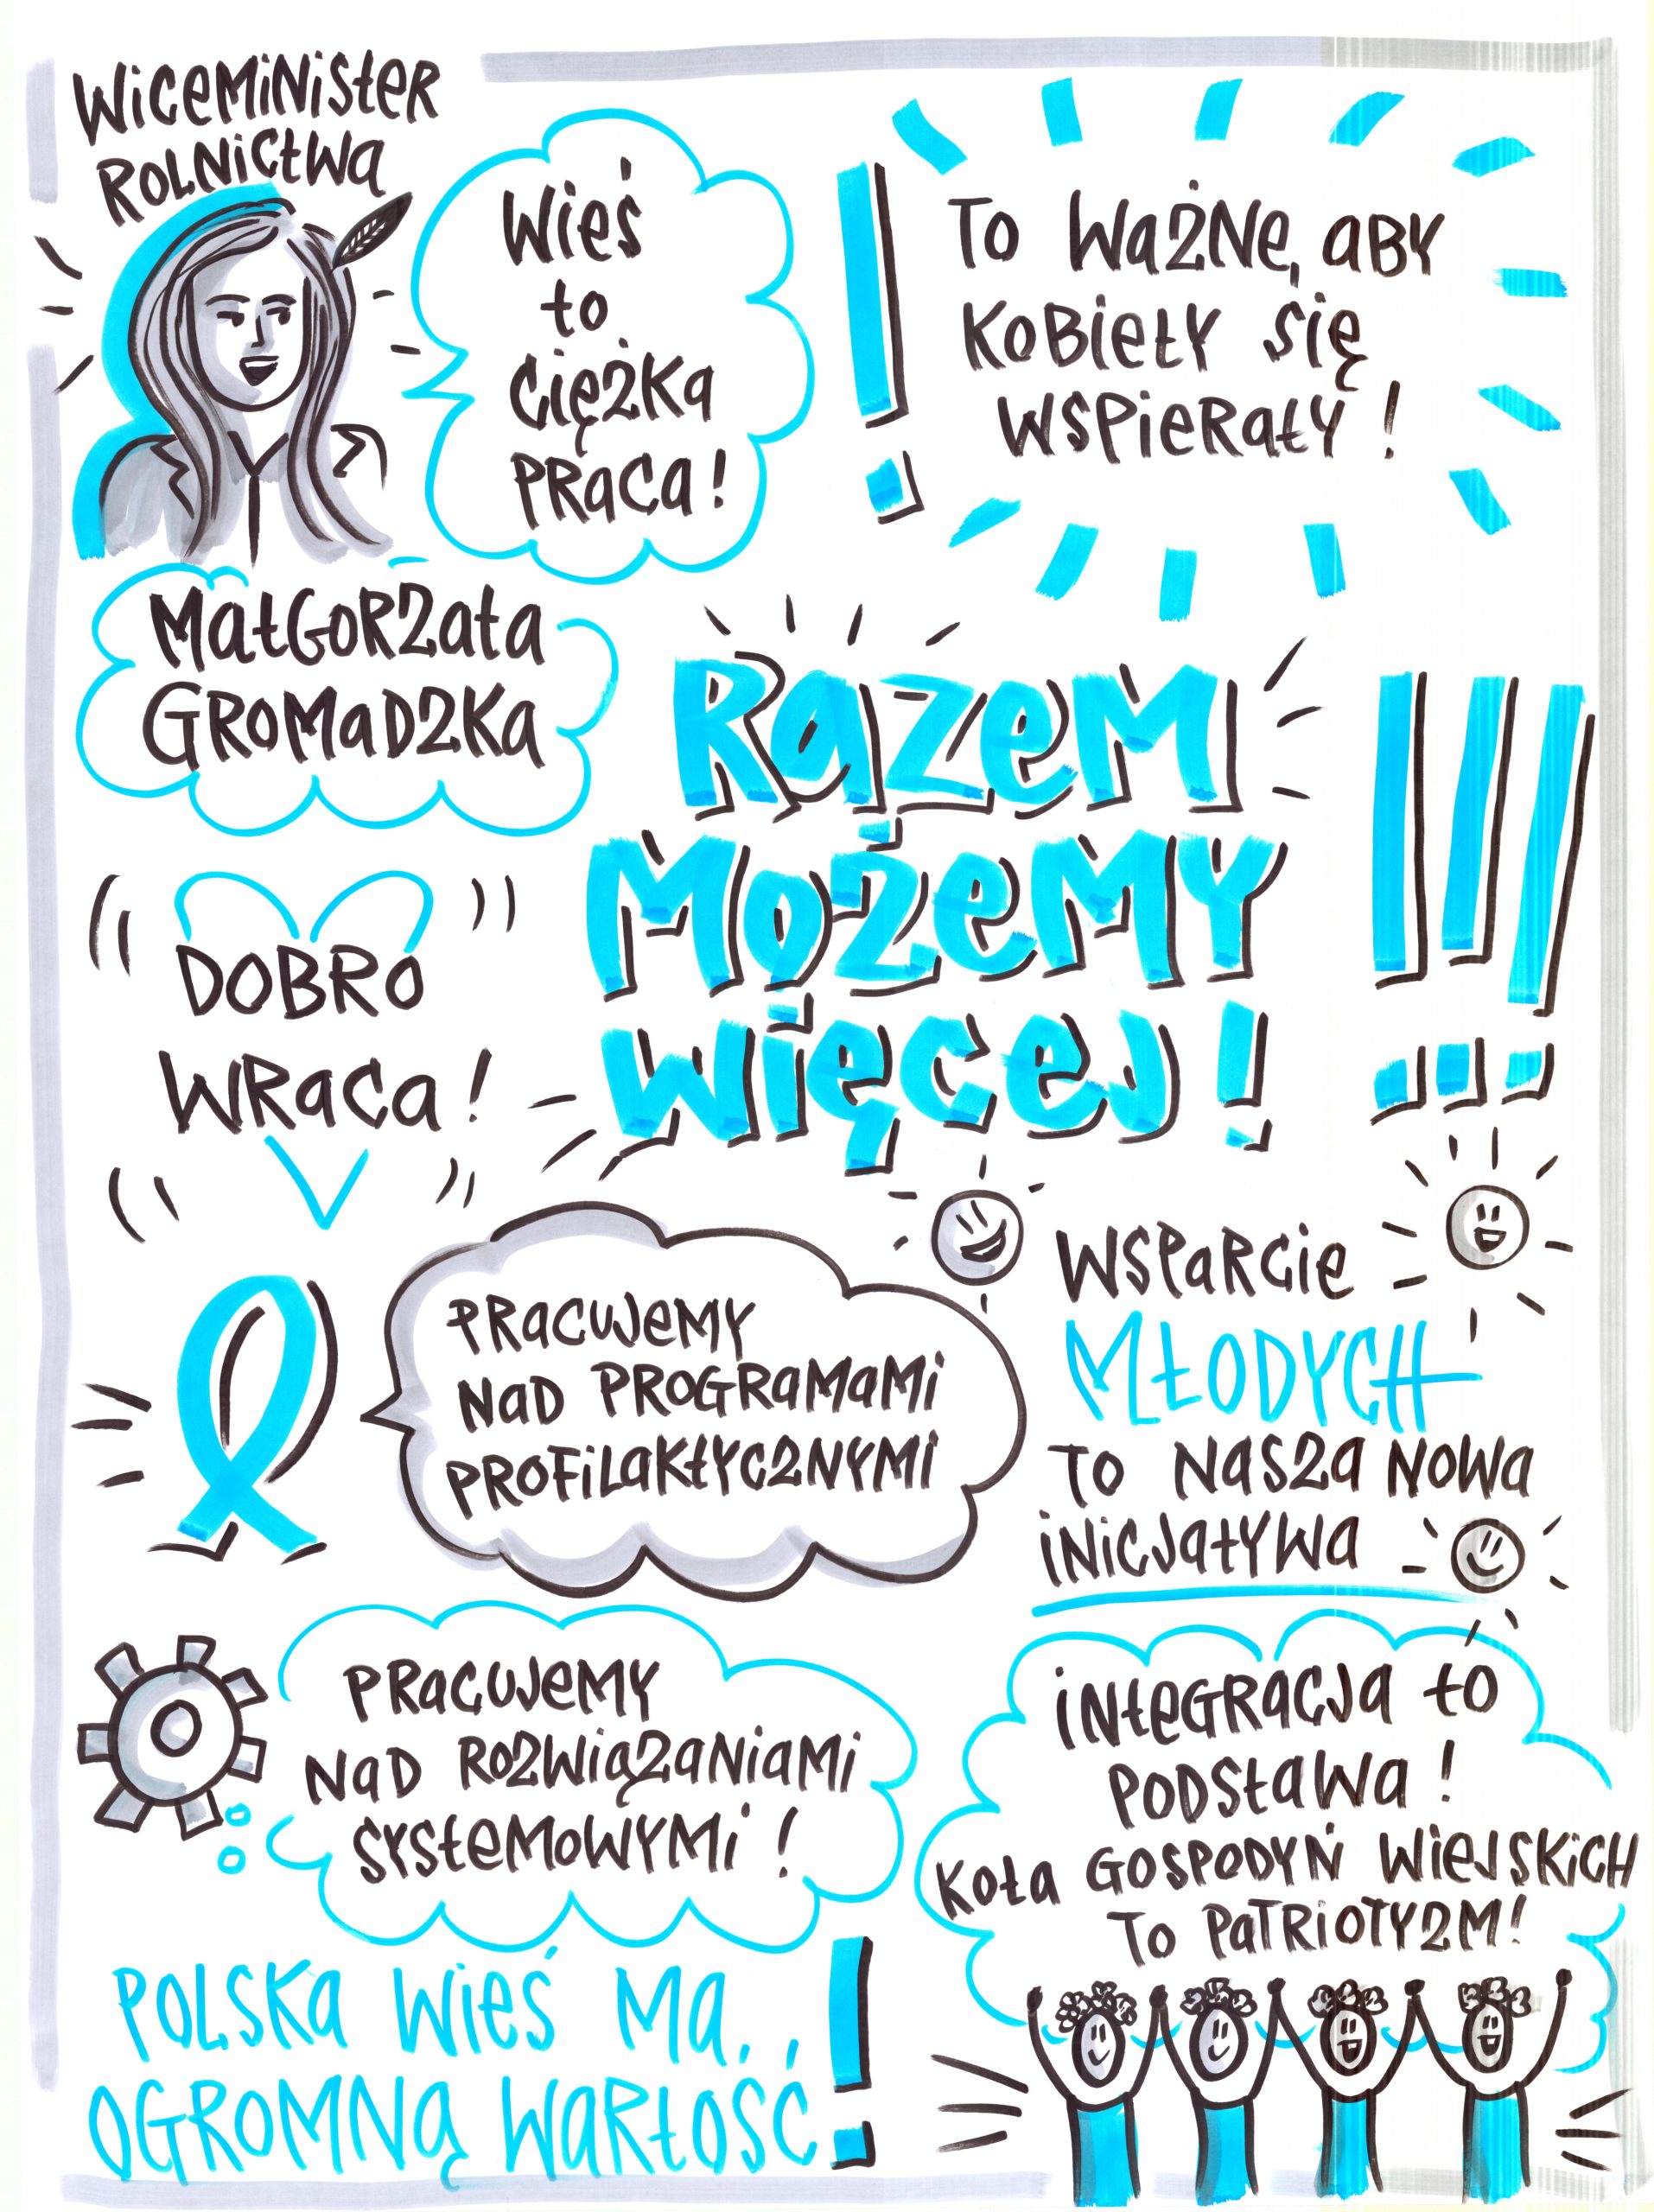 Wiceminister
Rolnictwa
Wieś
to
ciężka
praca!
To ważne, aby
kobiety się
wspierały!
Małgorzata
Gromadzka
Razem
możemy
więcej!
!!!
Dobro
wraca!
Pracujemy
nad programami
profilaktycznymi
Wsparcie
MŁODYCH
to nasza nowa
inicjatywa
Pracujemy
nad rozwiązaniami
systemowymi!
Integracja to
podstawa!
Koła Gospodyń Wiejskich
to patriotyzm!
Polska wieś ma
ogromną wartość!